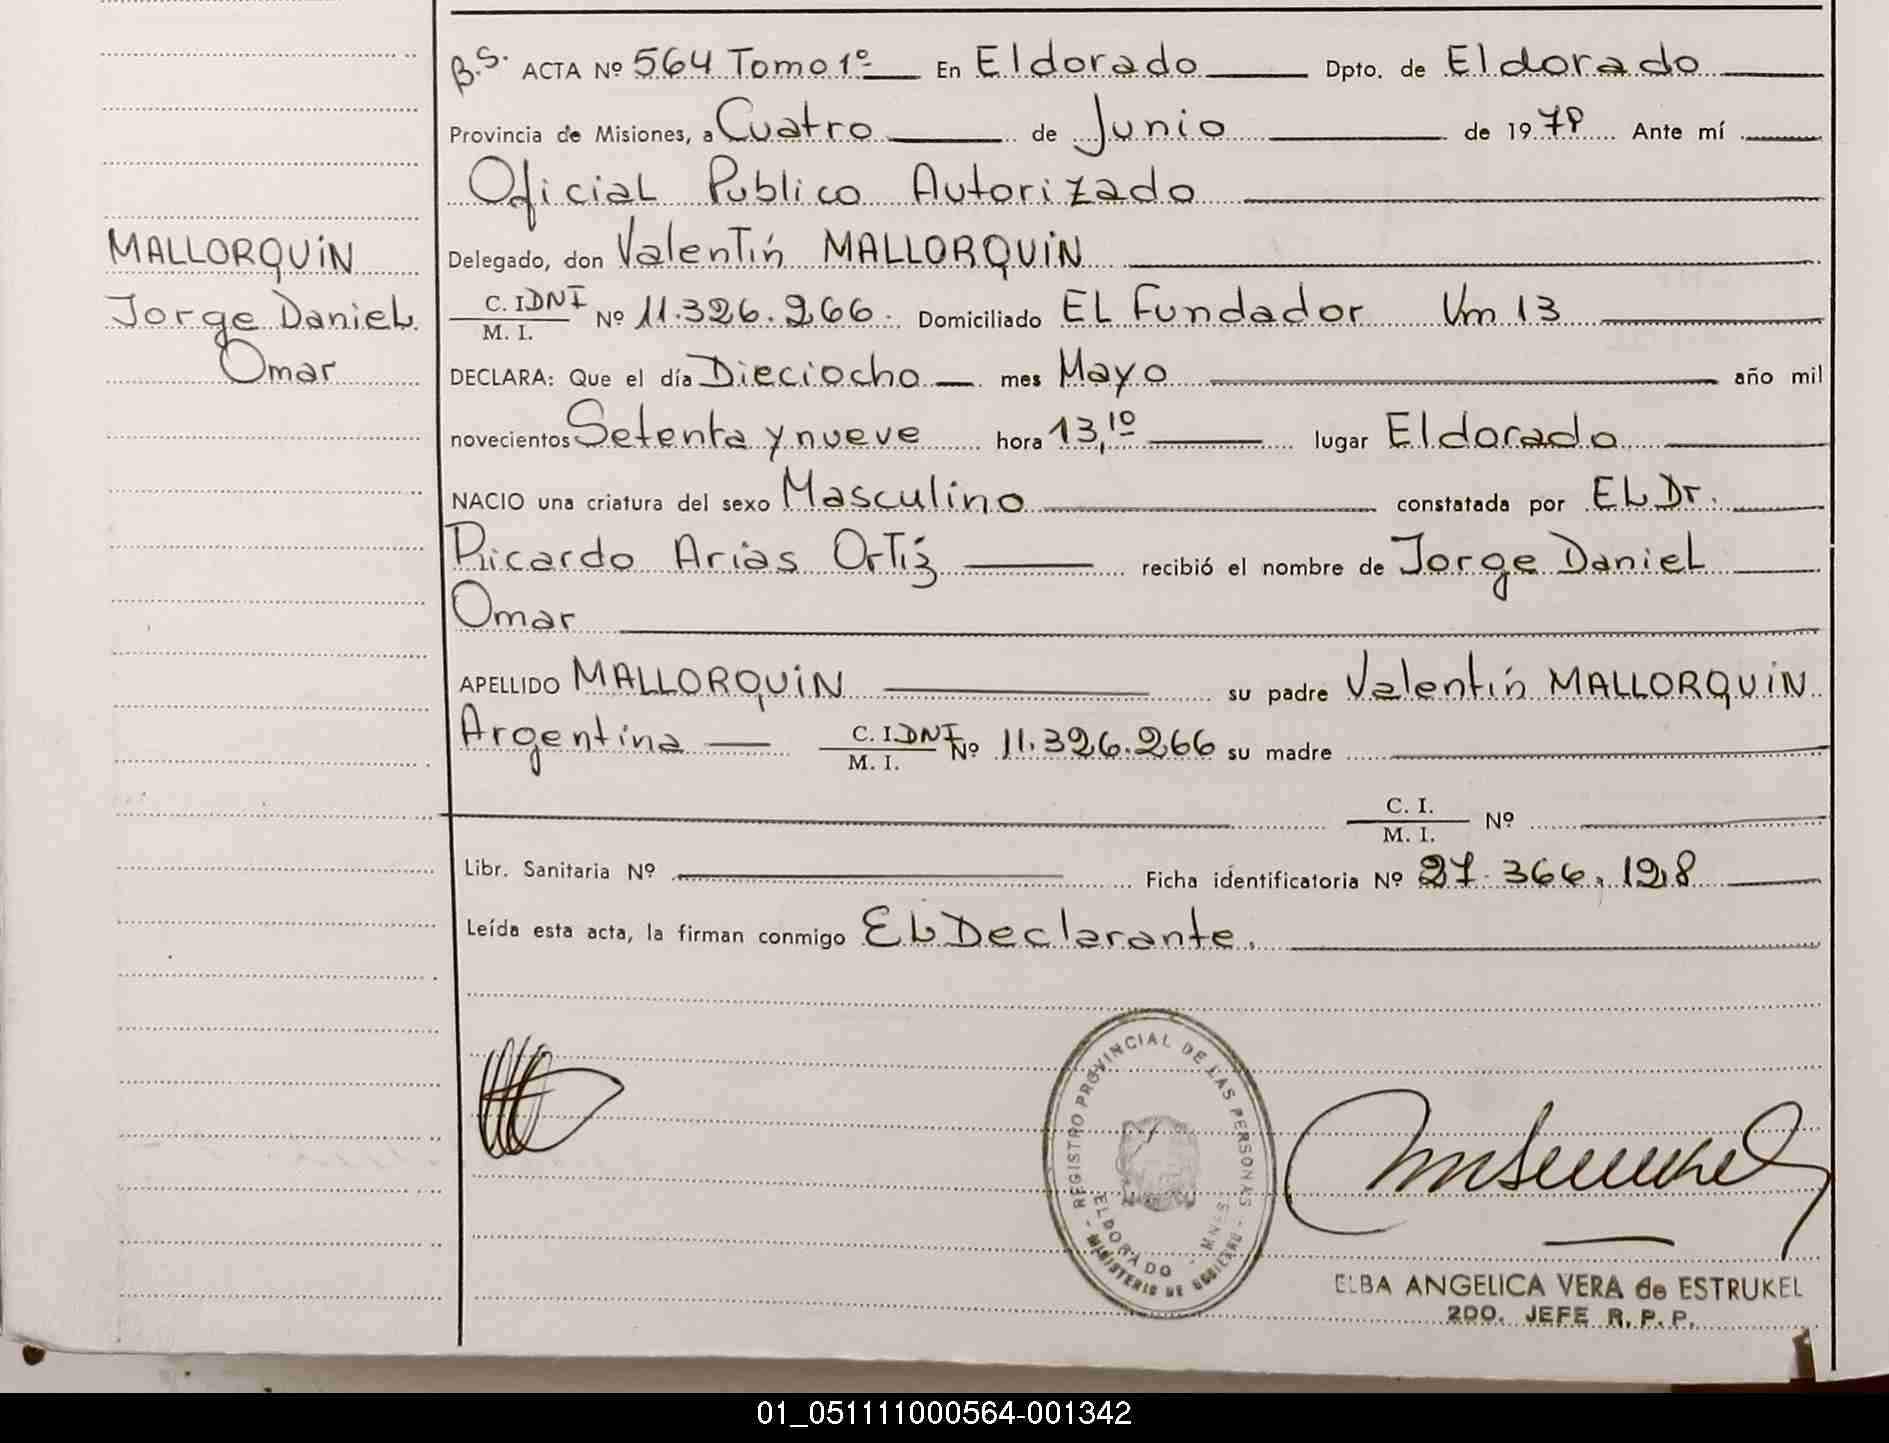 B.S. ACTA Nº 564 Tomo 1º En Eldorado Dpto. de Eldorado
Provincia de Misiones, a Cuatro de Junio de 1979 Ante mí
Oficial Publico Autorizado
MALLORQUiN
Delegado, don Valentín MALLORQUiN
Jorge Daniel
C. I. DNI
M. I.
Nº 11.326.266. Domiciliado EL Fundador Km 13
Omar
DECLARA: Que el día Dieciocho mes Mayo año mil
novecientos Setenta y nueve hora 13,10 lugar Eldorado
NACIO una criatura del sexo Masculino constatada por EL Dr.
Ricardo Arias Ortíz recibió el nombre de Jorge Daniel
Omar
APELLIDO MALLORQUiN su padre Valentín MALLORQUiN
Argentina C. I. DNI
M. I.
Nº 11.326.266 su madre
C. I.
M. I.
Nº
Libr. Sanitaria Nº Ficha identificatoria Nº 27.366.128
Leída esta acta, la firman conmigo EL Declarante.
REGISTRO PROVINCIAL DE LAS PERSONAS
ELDORADO - MNES
MINISTERIO DE GOBIERNO
ELBA ANGELICA VERA de ESTRUKEL
2DO. JEFE R. P. P.
01_051111000564-001342